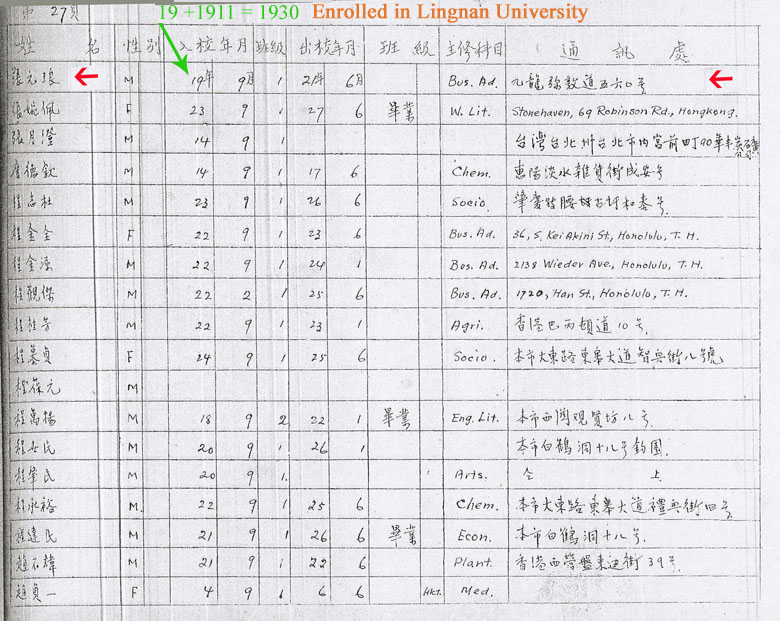 第 27頁
19 +1911 = 1930 Enrolled in Lingnan University
姓 名 性別 入校年月 班級 出校年月 班 級 主修科目 通 訊 處
張元 M 19年 9月 1 21年 6月 Bus. Ad. 九龍弥敦道五六〇号
張婉佩 F 23 9 1 27 6 畢業 W. Lit. Stonehaven, 69 Robinson Rd., Hongkong.
張月澄 M 14 9 1 台灣台北州台北市内宮前町90
德欽 M 14 9 1 17 6 Chem. 惠陽淡水雜貨街成安号
程志 M 23 9 1 26 6 Socio.
程金全 F 22 9 1 23 6 Bus. Ad. 36, S. Kei Akini St., Honolulu, T. H.
程金源 M 22 9 1 24 1 Bus. Ad. 2138 Wieder Ave., Honolulu, T. H.
程觀傑 M 22 2 1 25 6 Bus. Ad. 1720, Han St., Honolulu, T. H.
程 M 22 9 1 23 1 Agri. 香港巴丙頓道10号.
程慕貞 F 24 9 1 25 6 Socio. 本市大東路東皋大道智興街八號
程葆元 M
程萬揚 M 18 9 2 22 1 畢業 Eng. Lit. 本市西關觀賢坊八号.
程 民 M 20 9 1 26 1 本市白鶴洞十八号鈞園.
程肇民 M 20 9 1. Arts. 仝 上
程永裕 M. 22 9 1 25 6 Chem. 本市大東路東皋大道禮興街四号
程達民 M 21 9 1 26 6 畢業 Econ. 本市白鶴洞十八号.
趙石 M 21 9 1 22 6 Plant. 香港西營盤東边街39号.
趙貞一 F 4 9 1 6 6 Hkt. Med.